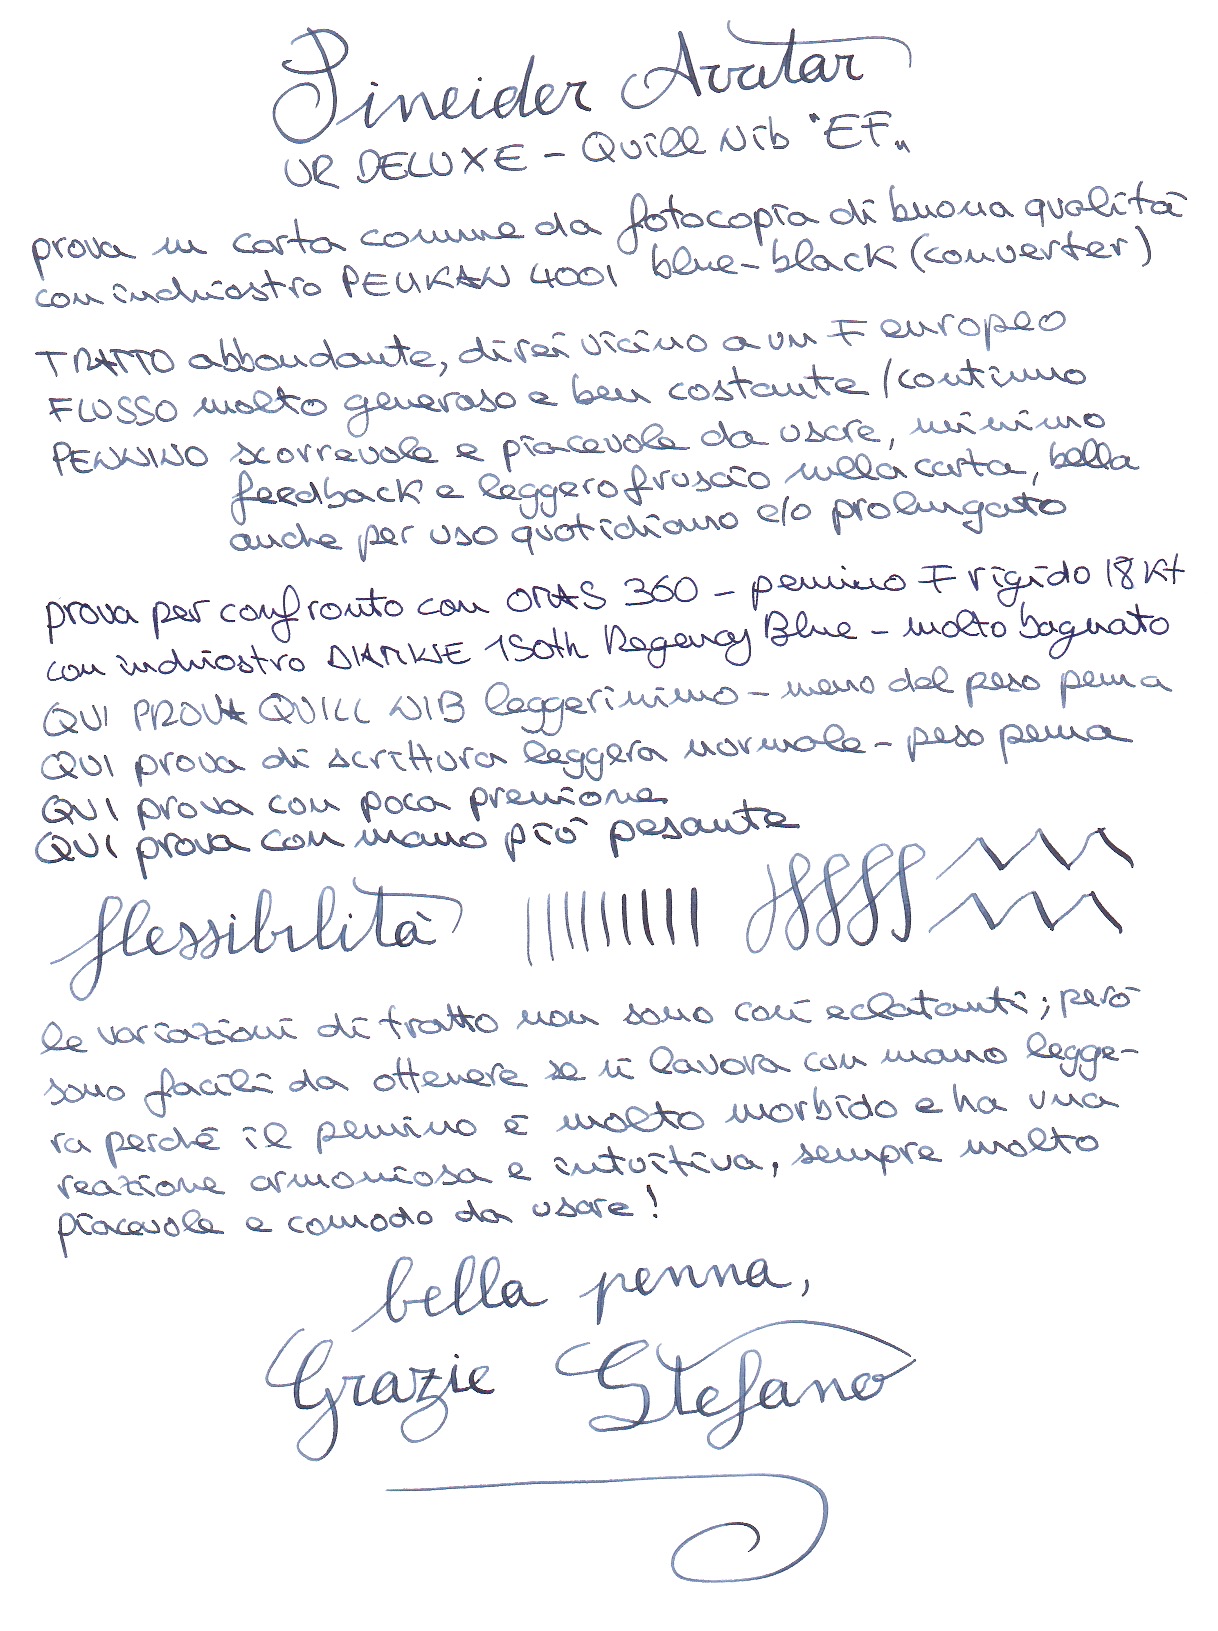 Pineider Avatar
UR DELUXE - Quill Nib "EF"
prova su carta comune da fotocopia di buona qualità
con inchiostro PELIKAN 4001 blue-black (converter)
TRATTO abbondante, direi vicino a un F europeo
FLUSSO molto generoso e ben costante/continuo
PENNINO scorrevole e piacevole da usare, minimo
feedback e leggero fruscio sulla carta, bella
anche per uso quotidiano e/o prolungato
prova per confronto con OMAS 360 - pennino F rigido 18Kt
con inchiostro DIAMINE 150th Regency Blue - molto bagnato
QUI PROVA QUILL NIB leggerissimo - meno del peso penna
QUI prova di scrittura leggera normale - peso penna
QUI prova con poca pressione
QUI prova con mano più pesante
flessibilità
le variazioni di tratto non sono così eclatanti; però
sono facili da ottenere se si lavora con mano legge-
ra perché il pennino è molto morbido e ha una
reazione armoniosa e intuitiva, sempre molto
piacevole e comodo da usare!
bella penna,
Grazie Stefano